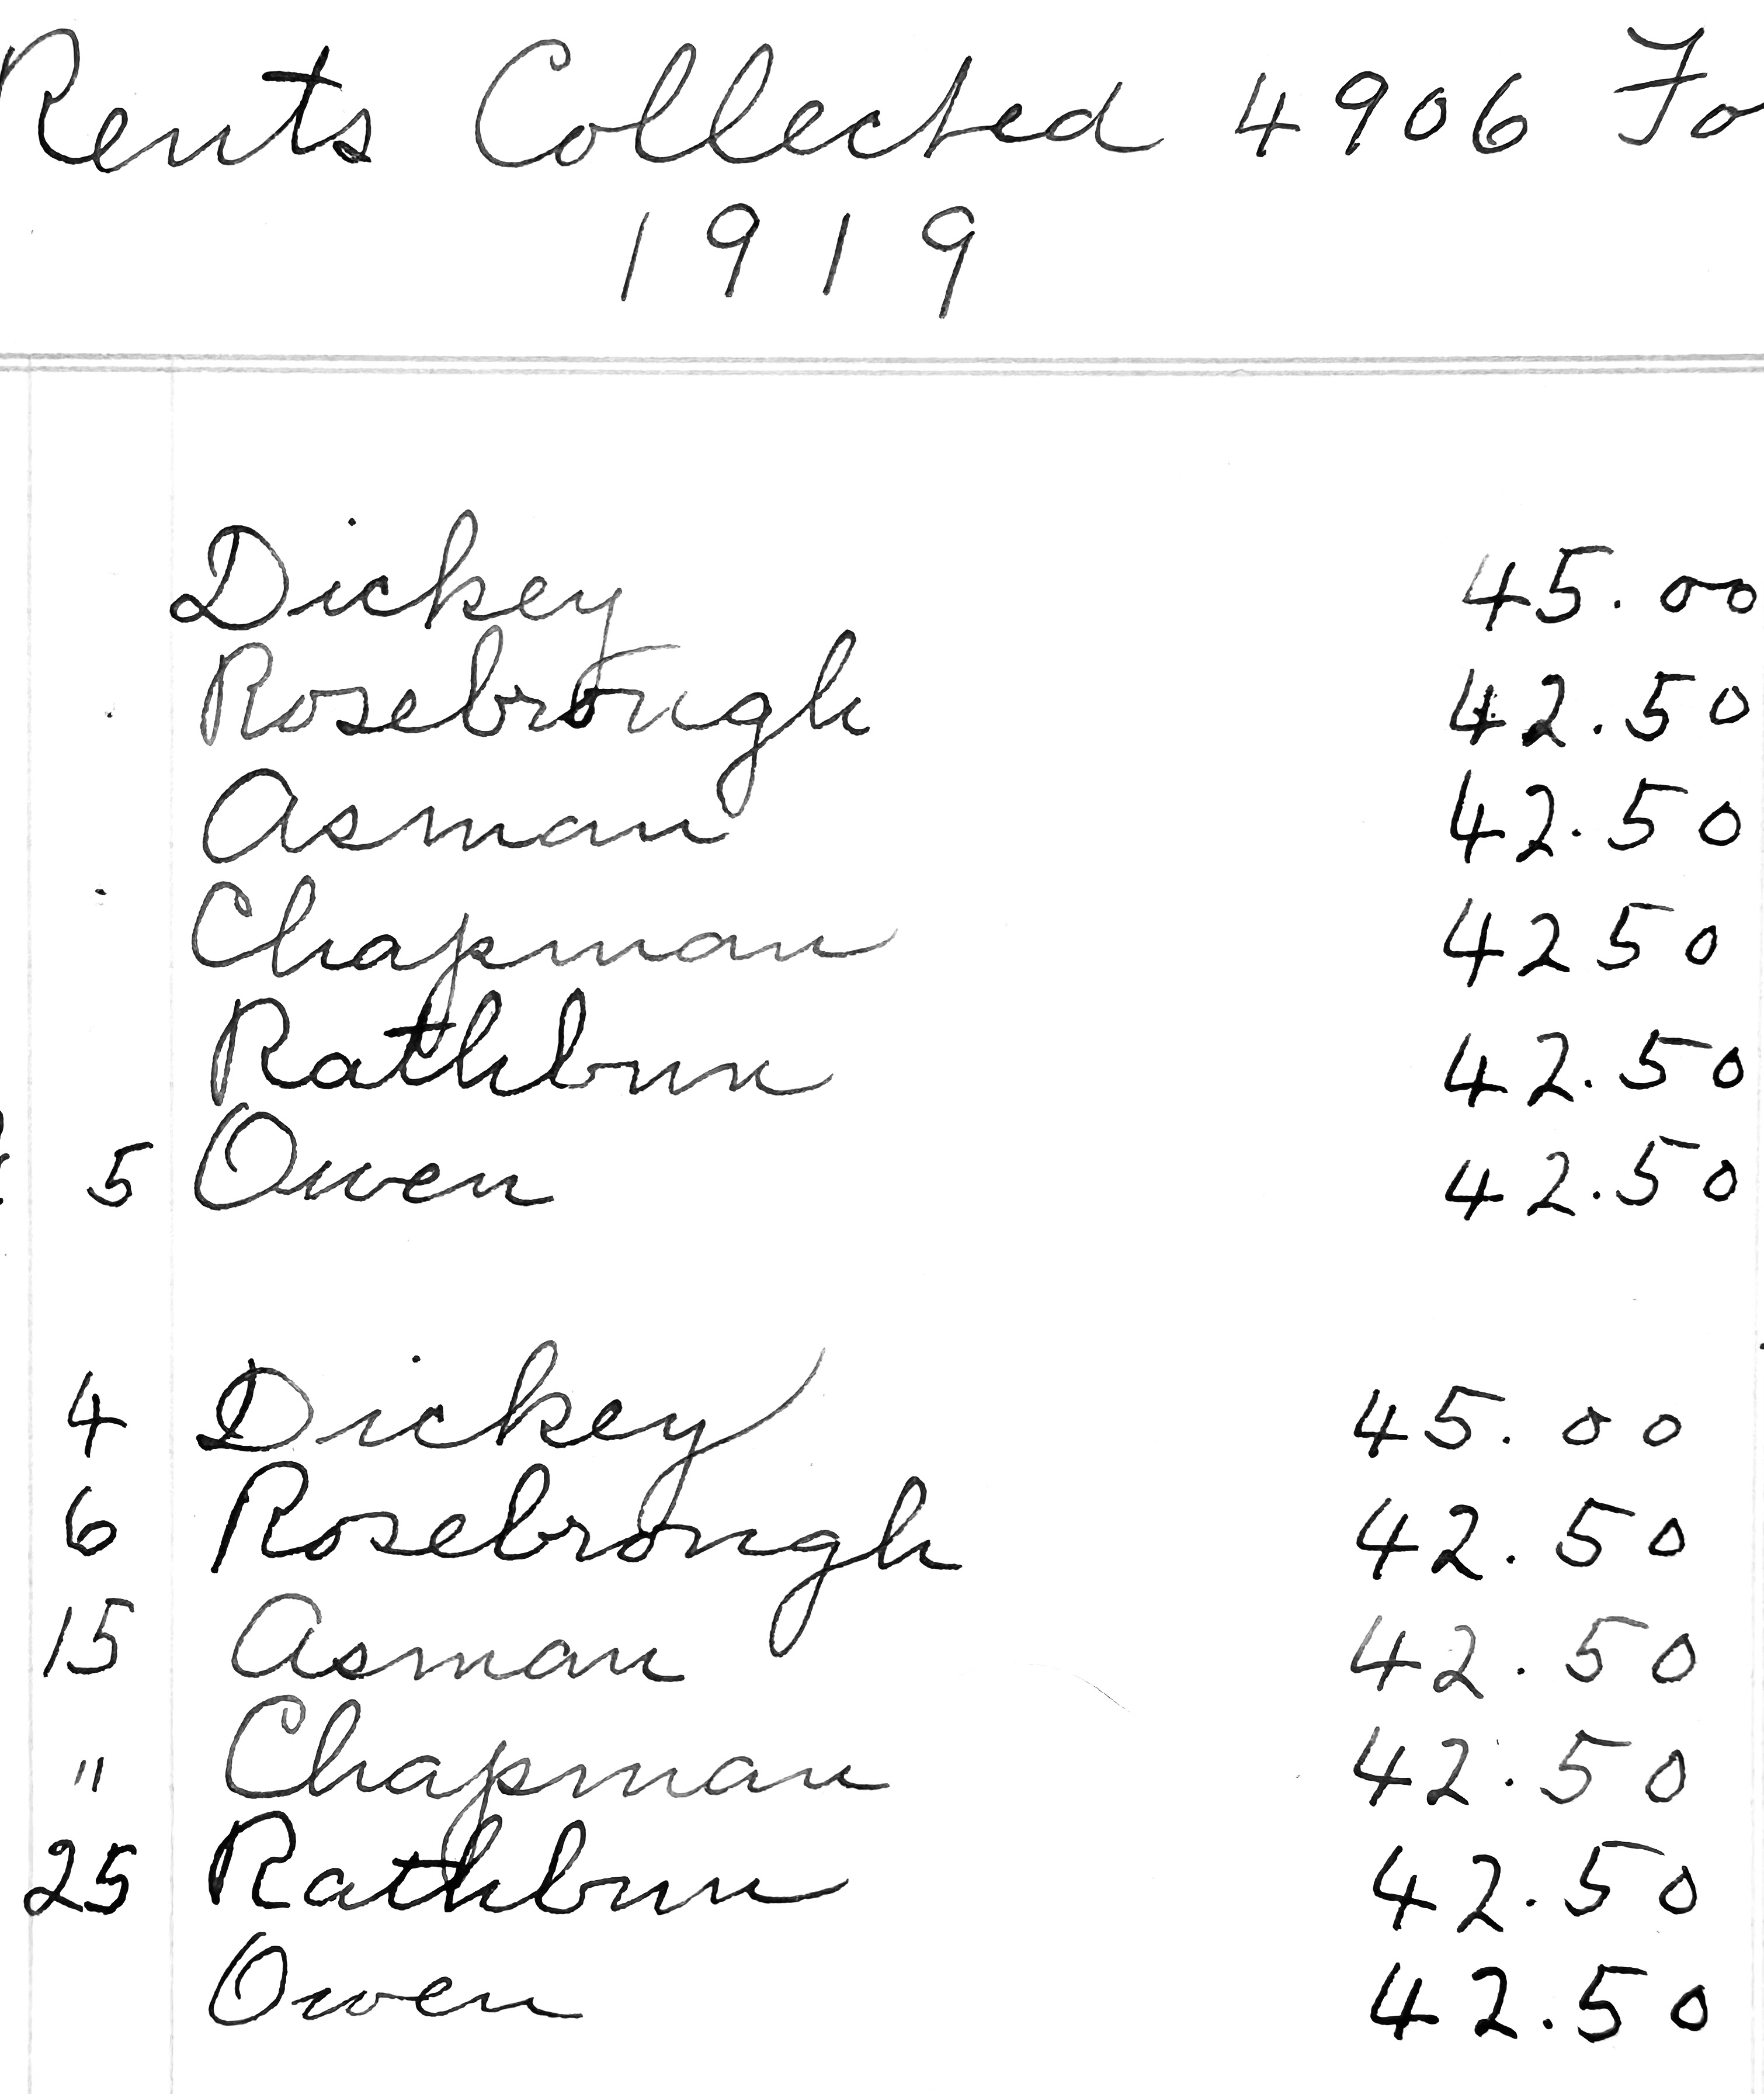 Rents Collected 4906 Fo
1919
Dickey 45.00
Rosebrough 42.50
Asman 42.50
Chapman 42 50
Rathbun 42.50
5 Owen 42.50
4 Dickey 45.00
6 Rosebrough 42.50
15 Asman 42.50
" Chapman 42.50
25 Rathbun 42.50
Owen 42.50